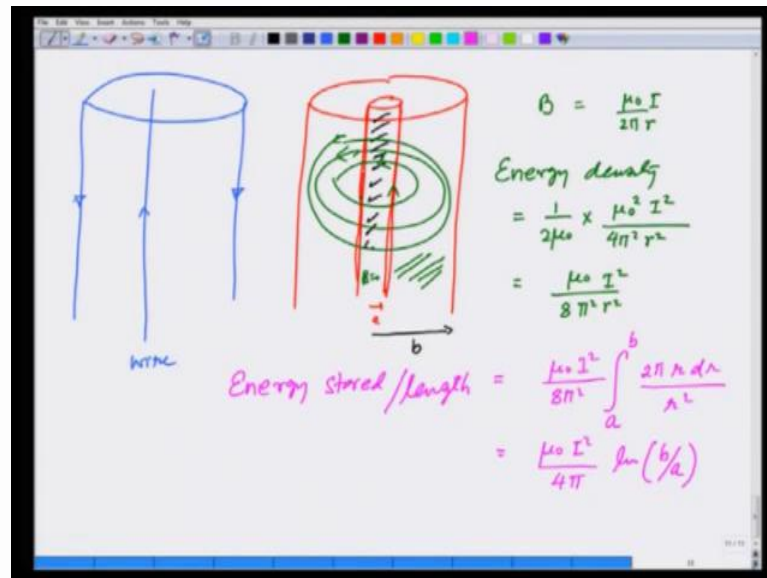 File Edit View Insert Actions Tools Help
B = μ₀ I / 2π r
Energy density
= 1 / 2μ₀ × μ₀² I² / 4π² r²
= μ₀ I² / 8 π² r²
B=0
a
b
wire
Energy stored/length = μ₀ I² / 8π² ∫ₐᵇ 2π r dr / r²
= μ₀ I² / 4π ln(b/a)